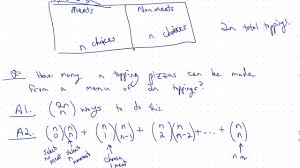 Meats Nonmeats
n choices n choices 2n total toppings.
Q: How many n topping pizzas can be made
from a menu of 2n toppings?
A1. (2n n) ways to do this.
A2. (n 0)(n n) + (n 1)(n n-1) + (n 2)(n n-2) + ... + (n n)
select no meats select n nonmeats choose 1 meat n m